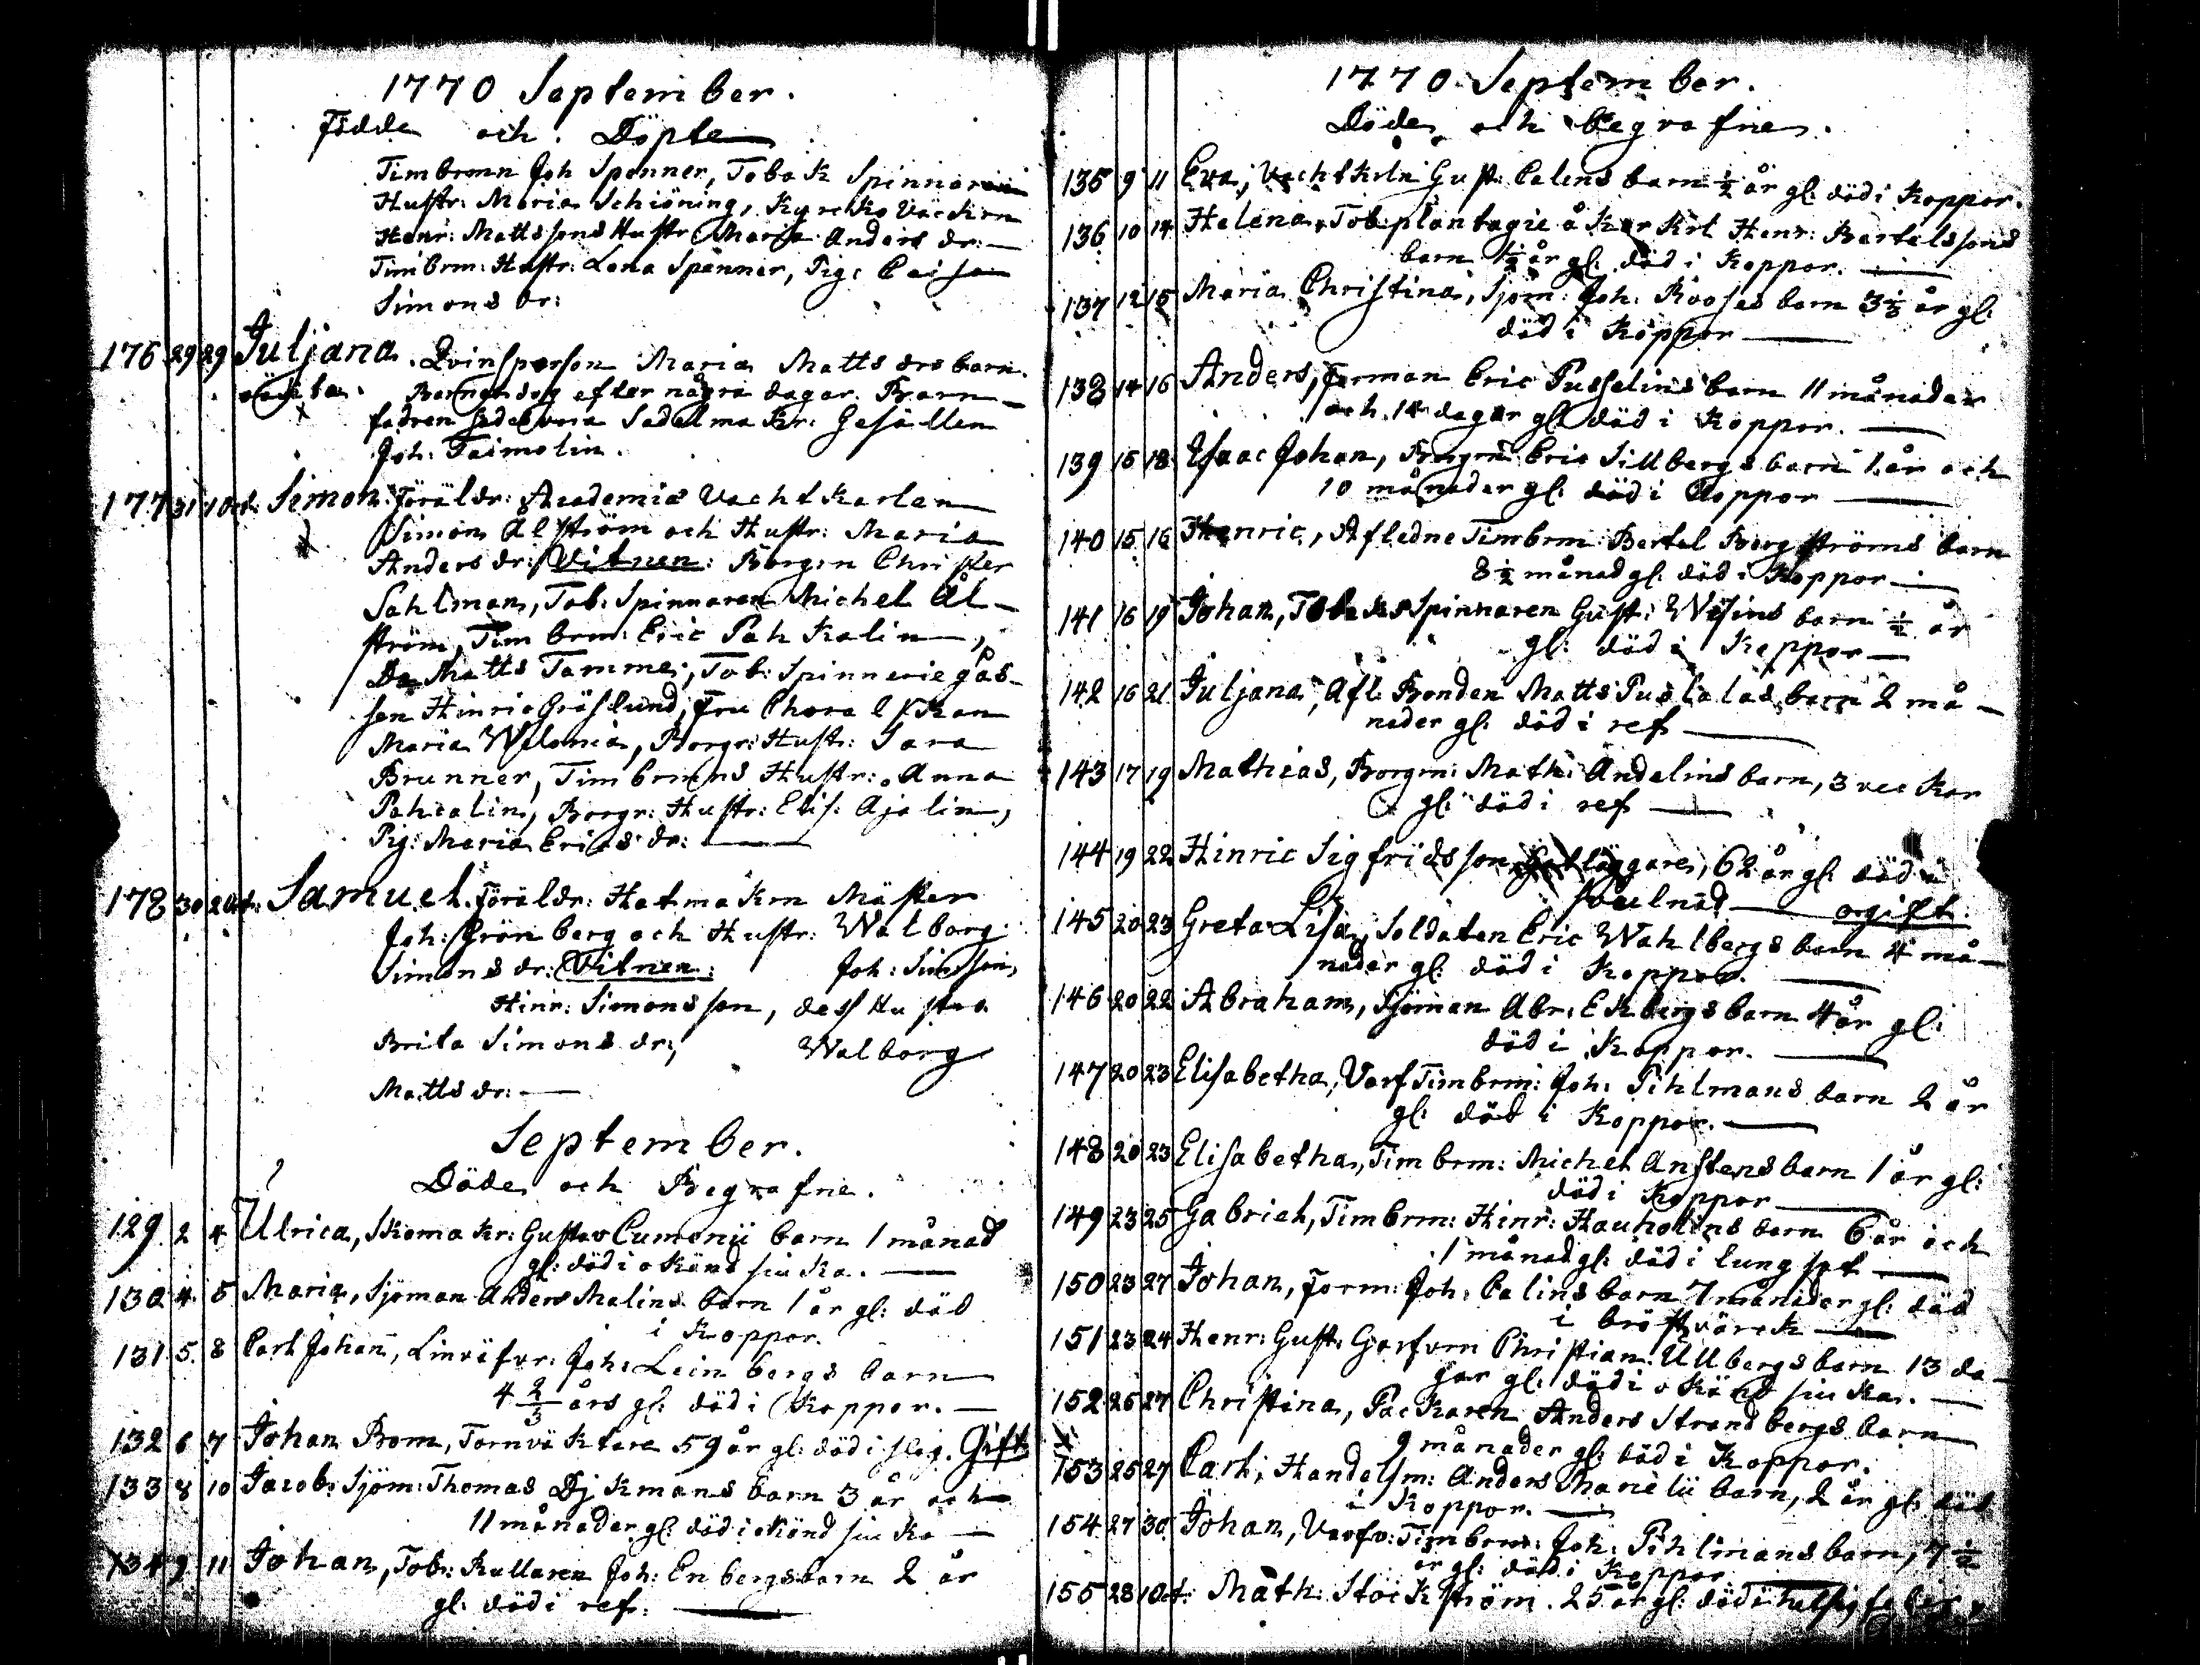 1770 September.
Födde och Döpte
Timbrman Joh Spenner, Tobak Spinnaren
Hustr: Maria Schiöning, Kyrcko Väcktrn
Henr: Mattssons Hustr Maria Anders dr:
Timbrm: Hustr: Lena Spenner, Pig: Caisa
Simons dr:
176 29 29 Juljana. Qvinsperson Maria Matts drs barn.
oäkta. Barnet dog efter några dagar. Barn
fadren sades vara Sadelmakr: Gesällen
Joh: Taimolin.
177 31 1 Oct: Simon. Föräldr: Academiæ Vachtkarlen
Simon Alström och Hustr: Maria
Anders dr: Vitnen: Borgrn Christer
Sahlman, Tob: Spinnaren Michel Ål-
ström, Timbrm: Eric Pahkalin,
Do Matts Tamme, Tob: Spinnerie gås-
sen Hinric Gröslund, Fru Choral
Maria Welonia, Borgr: Hustr: Sara
Brunner, Timbrmns Hustr: Anna
Pahcalin, Borgr: Hustr: Elis: Ajalin,
Pig: Maria Erics dr:
178 30 2 Oct: Samuel. Föräldr: Hatmakrn Mäster
Joh: Grönberg och Hustr: Walborg
Simons dr: Vitnen: Joh: Simsson,
Hinr: Simonsson, dess Hustro
Brita Simons dr:, Walborg
Matts dr:
September.
Döde och Begrafne.
129 2 4 Ulrica, Skomakr: Gustav Cumenii barn 1 månad
gl: död i okänd siuka.
130 4 5 Maria, Sjöman Anders Malins barn 1 år gl: död
i Koppor.
131 5 8 Carl Johan, Linväfvr: Joh: Leinbergs barn
4 2/3 års gl: död i Koppor.
132 6 7 Johan Brom, Tornväktare 59 år gl: död i slag. Gift
133 8 10 Jacob, Sjöm: Thomas Djkmans barn 3 år och
11 månader gl: död i okänd siuka
134 9 11 Johan, Tob: Rullaren Joh: Enbergs barn 2 år
gl: död i ref:
1770 September.
Döde och begrafne.
135 9 11 Eva, Vachtkrln Gust: Calens barn 1/2 år gl: död i Koppor.
136 10 14 Helena, Tob: plantagie åkerkrl Henr: Bertelssons
barn 1 1/2 år gl: död i Koppor.
137 12 15 Maria Christina, Sjöm: Joh: Rooses barn 3 1/3 år gl:
död i Koppor
138 14 16 Anders, Forman Eric Pusselins barn 11 månader
och 14 dagar gl: död i Koppor.
139 15 18 Isaac Johan, Borgrn Eric Sillbergs barn 1 år och
10 månader gl: död i Koppor
140 15 16 Henric, Afledne Timbrm: Bertel Bergströms barn
8 1/2 månad gl: död i Koppor
141 16 19 Johan, Tobaks Spinnaren Gust: Wisins barn 1/2 år
gl: död i Koppor
142 16 21 Juljana, Afl: Bonden Matts Puslalas barn 2 må-
nader gl: död i ref
143 17 19 Mathias, Borgrn: Math: Andelins barn, 3 veckor
gl: död i ref
144 19 22 Hinric Sigfridsson Gatläggare, 62 år gl: död i
svulnad ogift.
145 20 23 Greta Lisa, Soldaten Eric Wahlbergs barn 4 må-
nader gl: död i Koppor.
146 20 22 Abraham, Sjöman Abr: Ekbergs barn 4 år gl:
död i Koppor.
147 20 23 Elisabetha, Varf Timbrm: Joh: Pihlmans barn 2 år
gl: död i Koppor.
148 20 23 Elisabetha, Timbrm: Michel Anstens barn 1 år gl:
död i Koppor
149 23 25 Gabriel, Timbrm: Hinr: Hauholins barn 6 år och
1 månad gl: död i lungsot
150 23 27 Johan, Form: Joh: Calins barn 7 månader gl: död
i bröstvärck
151 23 24 Henr: Gust: Garfvrn Christian Ullbergs barn 13 da-
gar gl: död i okänd siuka.
152 26 27 Christina, Packaren Anders Strandbergs barn
9 månader gl: död i Koppor.
153 25 27 Carl, Handelsm: Anders Marielii barn, 2 år gl: död
i Koppor.
154 27 30 Johan, Varfv: Timbrm: Joh: Pihlmans barn, 7 1/2
år gl: död i Koppor
155 28 1 Oct: Math: Stockström. 25 år gl: död i